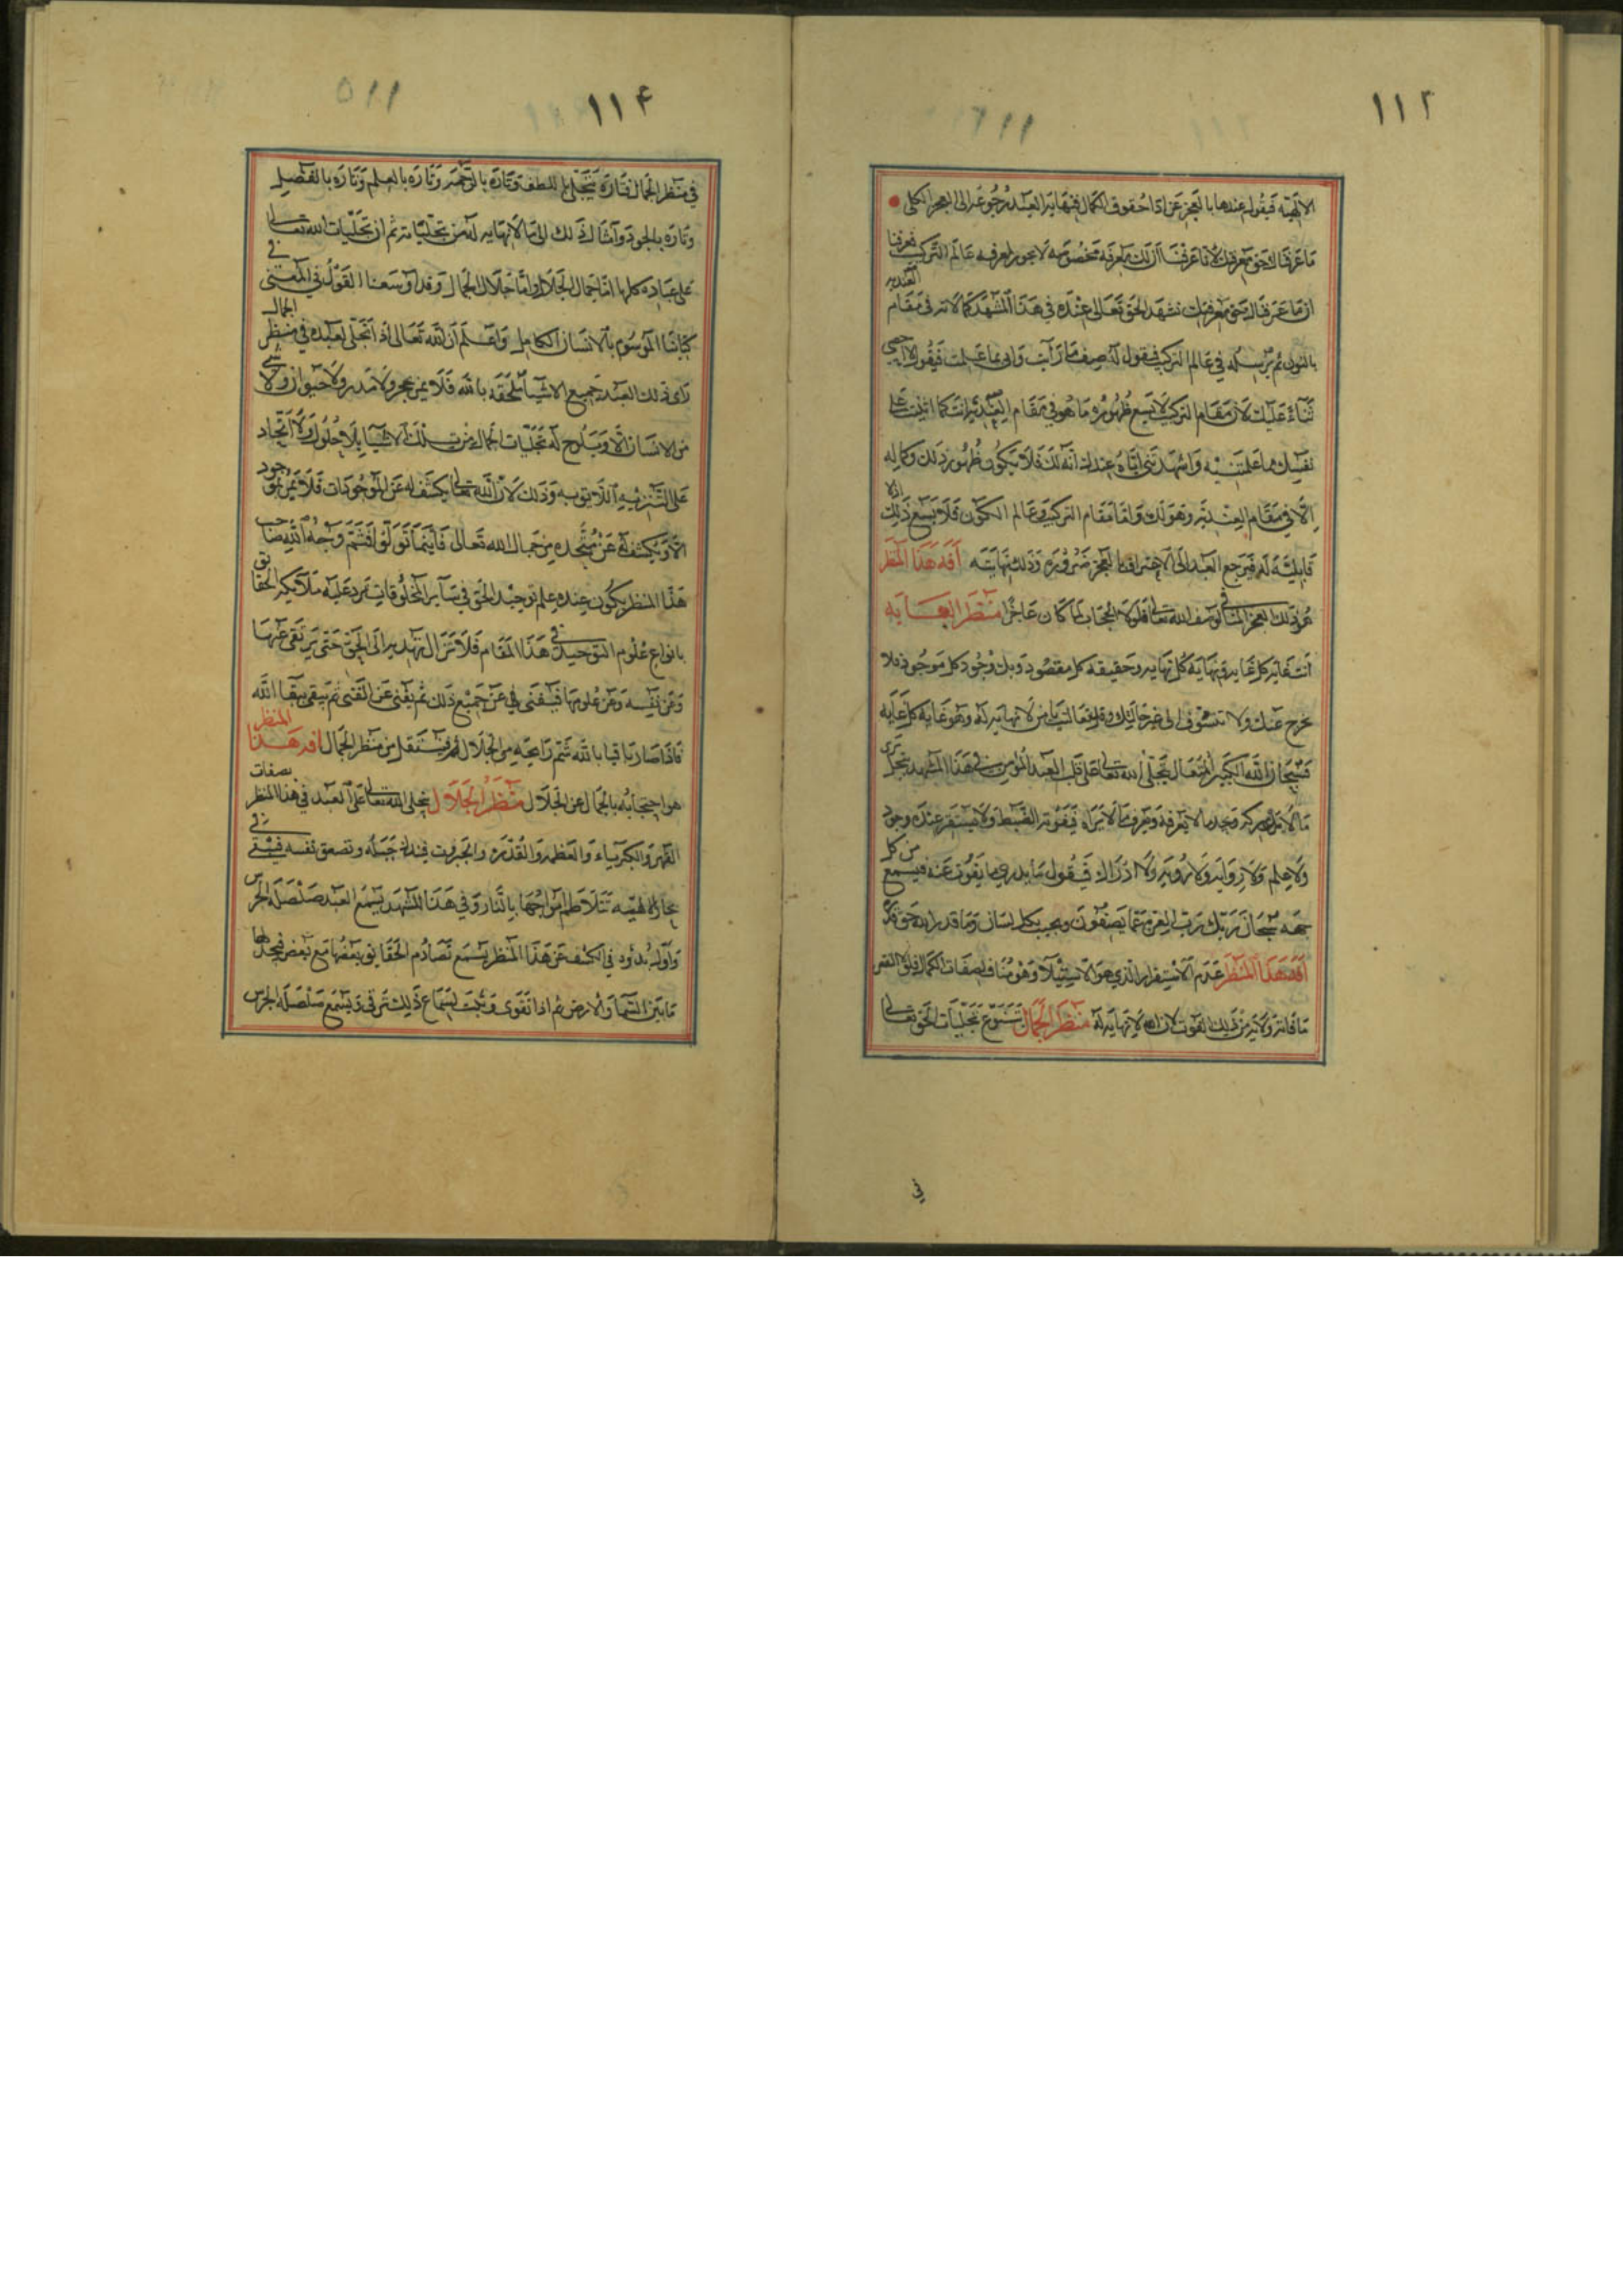 ١١٢
الالهية فيقول عندها بالعجز عن اداء حقوق الكمال فنهاية العبد رجوعه الى العجز الكلى
ما عرفناك حق معرفتك لانا عرفنا ان لك معرفة مخصوصة لا يجوز لمعرفة عالم التركيب فعرفنا
ان ما عرفناك حق معرفتك نشهد الحق تعالى عنده في هذا المشهد كمالاته في مقام العندية
بالنون ثم يرسله في عالم التركيب فيقول له صف ما رأيت واى بما علمت فيقول لا احصى
ثناء عليك لان مقام التركيب لا يسع ظهوره ما هو في مقام العندية انت كما اثنيت على
نفسك بما علمتنيه واشهدتنى اياه عندك انه لك فلا يكون ظهور ذلك وكماله
الا في مقام العندية وهو لك واما مقام التركيب في عالم الكون فلا يسع ذلك اذ لا
قابلية له فيرجع العبد الى الاعتراف بالعجز ضرورة وذلك نهايته افة هذا المنظر
هو ذلك العجز المنافى لوصف الله تعالى فلولا الحجاب لما كان عاجزا منظر الغاية
انت غاية كل غاية ونهاية كل نهاية وحقيقة كل مقصود وبك وجود كل موجود فلا
تخرج عنك ولا تتشوف الى غير جمالك وقد تعاليت يا من لا نهاية له وهو غاية كل غاية
فسبحان الله الكبير المتعال تجلى الله تعالى على قلب العبد المؤمن في هذا المشهد تجل يرى
ما لا يدركه ويجد ما لا يعرفه ويعرف ما لا يراه فيفوته الضبط ولا يستقر عنده وجود
ولا علم ولا رواية ولا رؤية ولا ادراك فيقول ما يدري ما يفوت عنه فيسمع من كل
جهة سبحان ربك رب العزة عما يصفون ويجب بكل لسان وما قدروا الله حق قدره
افة هذا المنظر عدم الاستقرار الذي هو الاستيلاء وهو مناف لصفات الكمال فلولا النقص
ما فاته ولابد من ذلك الفوت لان الله لا نهاية له منظر الجمال تتنوع تجليات الحق تعالى
في
١١٤
في منظر الجمال فتارة يتجلى باللطف وتارة بالرحمة وتارة بالعلم وتارة بالفضل
وتارة بالجود وامثال ذلك الى ما لا نهاية له من تجلياته ثم ان تجليات الله تعالى
على عباده كلها اما جمال الجلال واما جلال الجمال وقد اوسعنا القول في المعنى في
كتابنا الموسوم بالانسان الكامل واعلم ان الله تعالى اذا تجلى لعبده في منظر الجمال
رأى ذلك العبد جميع الاشياء ملحقة بالله فلا يمر بحجر ولا مدر ولا حيوان ولا شىء
من الانسان الا ويلوح له تجليات الجمال من تلك الاشياء بلا حلول ولا اتحاد
على التنزيه اللائق به وذلك لان الله تعالى يكشف له عن الموجودات فلا يمر بموجود
الا ويكشف له عن محتده من جمال الله تعالى فاينما تولوا فثم وجه الله صاحب
هذا المنظر يكون عنده علم توحيد الحق في سائر المخلوقات ترد عليه ملائكة الحقائق
بانواع علوم التوحيد في هذا المقام فلا تزال تهديه الى الحق حتى يرتقى عنها
وعن نفسه وعن علومها فيفنى في عن جميع ذلك ثم يفنى عن الفنى ثم يبقى ببقاء الله
فاذا صار باقيا بالله شم رائحة من الجلال ثم ينتقل من منظر الجمال افة هذا المنظر
هو احتجابه بالجمال عن الجلال منظر الجلال يتجلى الله تعالى على العبد في هذا المنظر بصفات
القهر والكبرياء والعظمة والقدرة والجبروت فيندك جبله وتصعق نفسه فيبقى في
بحار الهية تتلاطم امواجها بالنار وفي هذا المشهد يسمع العبد صلصلة الجرس
واول بدؤه في الكشف عن هذا المنظر يسمع تصادم الحقائق بعضها مع بعض فيجدها
ما بين السماء والارض ثم اذا تقوى وثبت لسماع ذلك ترقى ويسمع صلصلة الجرس